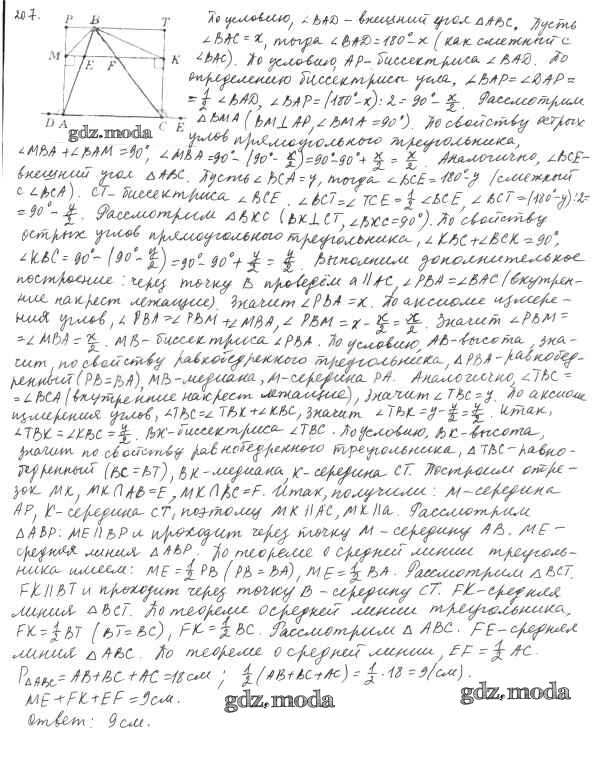 207.
P B T
M E F K
D A C E
gdz.moda
По условию, ∠BAD – внешний угол △ABC. Пусть
∠BAC = x, тогда ∠BAD = 180° - x (как смежный с
∠BAC). По условию, AP – биссектриса ∠BAD. По
определению биссектрисы угла, ∠BAP = ∠DAP =
= 1/2 ∠BAD, ∠BAP = (180° - x) : 2 = 90° - x/2. Рассмотрим
△BMA (BM ⊥ AP, ∠BMA = 90°). По свойству острых
углов прямоугольного треугольника,
∠MBA + ∠BAM = 90°, ∠MBA = 90° - (90° - x/2) = 90° - 90° + x/2 = x/2. Аналогично, ∠BCE –
внешний угол △ABC. Пусть ∠BCA = y, тогда ∠BCE = 180° - y (смежный
с ∠BCA). CT – биссектриса ∠BCE. ∠BCT = ∠TCE = 1/2 ∠BCE, ∠BCT = (180° - y) : 2 =
= 90° - y/2. Рассмотрим △BKC (BK ⊥ CT, ∠BKC = 90°). По свойству
острых углов прямоугольного треугольника, ∠KBC + ∠BCK = 90°,
∠KBC = 90° - (90° - y/2) = 90° - 90° + y/2 = y/2. Выполним дополнительное
построение: через точку B проведём a ∥ AC, ∠PBA = ∠BAC (внутрен-
ние накрест лежащие). Значит ∠PBA = x. По аксиоме измере-
ния углов, ∠PBA = ∠PBM + ∠MBA, ∠PBM = x - x/2 = x/2. Значит ∠PBM =
= ∠MBA = x/2. MB – биссектриса ∠PBA. По условию, AB – высота, зна-
чит, по свойству равнобедренного треугольника, △PBA – равнобед-
ренный (PB = BA), MB – медиана, M – середина PA. Аналогично, ∠TBC =
= ∠BCA (внутренние накрест лежащие), значит ∠TBC = y. По аксиоме
измерения углов, ∠TBC = ∠TBK + ∠KBC, значит ∠TBK = y - y/2 = y/2. Итак,
∠TBK = ∠KBC = y/2. BK – биссектриса ∠TBC. По условию, BK – высота,
значит по свойству равнобедренного треугольника, △TBC – равно-
бедренный (BC = BT), BK – медиана, K – середина CT. Построим отре-
зок MK, MK ∩ AB = E, MK ∩ BC = F. Итак, получили: M – середина
AP, K – середина CT, поэтому MK ∥ AC, MK ∥ a. Рассмотрим
△ABP: ME ∥ BP и проходит через точку M – середину AB. ME –
средняя линия △ABP. По теореме о средней линии треуголь-
ника имеем: ME = 1/2 PB (PB = BA), ME = 1/2 BA. Рассмотрим △BCT.
FK ∥ BT и проходит через точку B – середину CT. FK – средняя
линия △BCT. По теореме о средней линии треугольника,
FK = 1/2 BT (BT = BC), FK = 1/2 BC. Рассмотрим △ABC. FE – средняя
линия △ABC. По теореме о средней линии, EF = 1/2 AC.
P△ABC = AB + BC + AC = 18 см; 1/2 (AB + BC + AC) = 1/2 · 18 = 9 (см).
ME + FK + EF = 9 см.
gdz.moda gdz.moda
Ответ: 9 см.